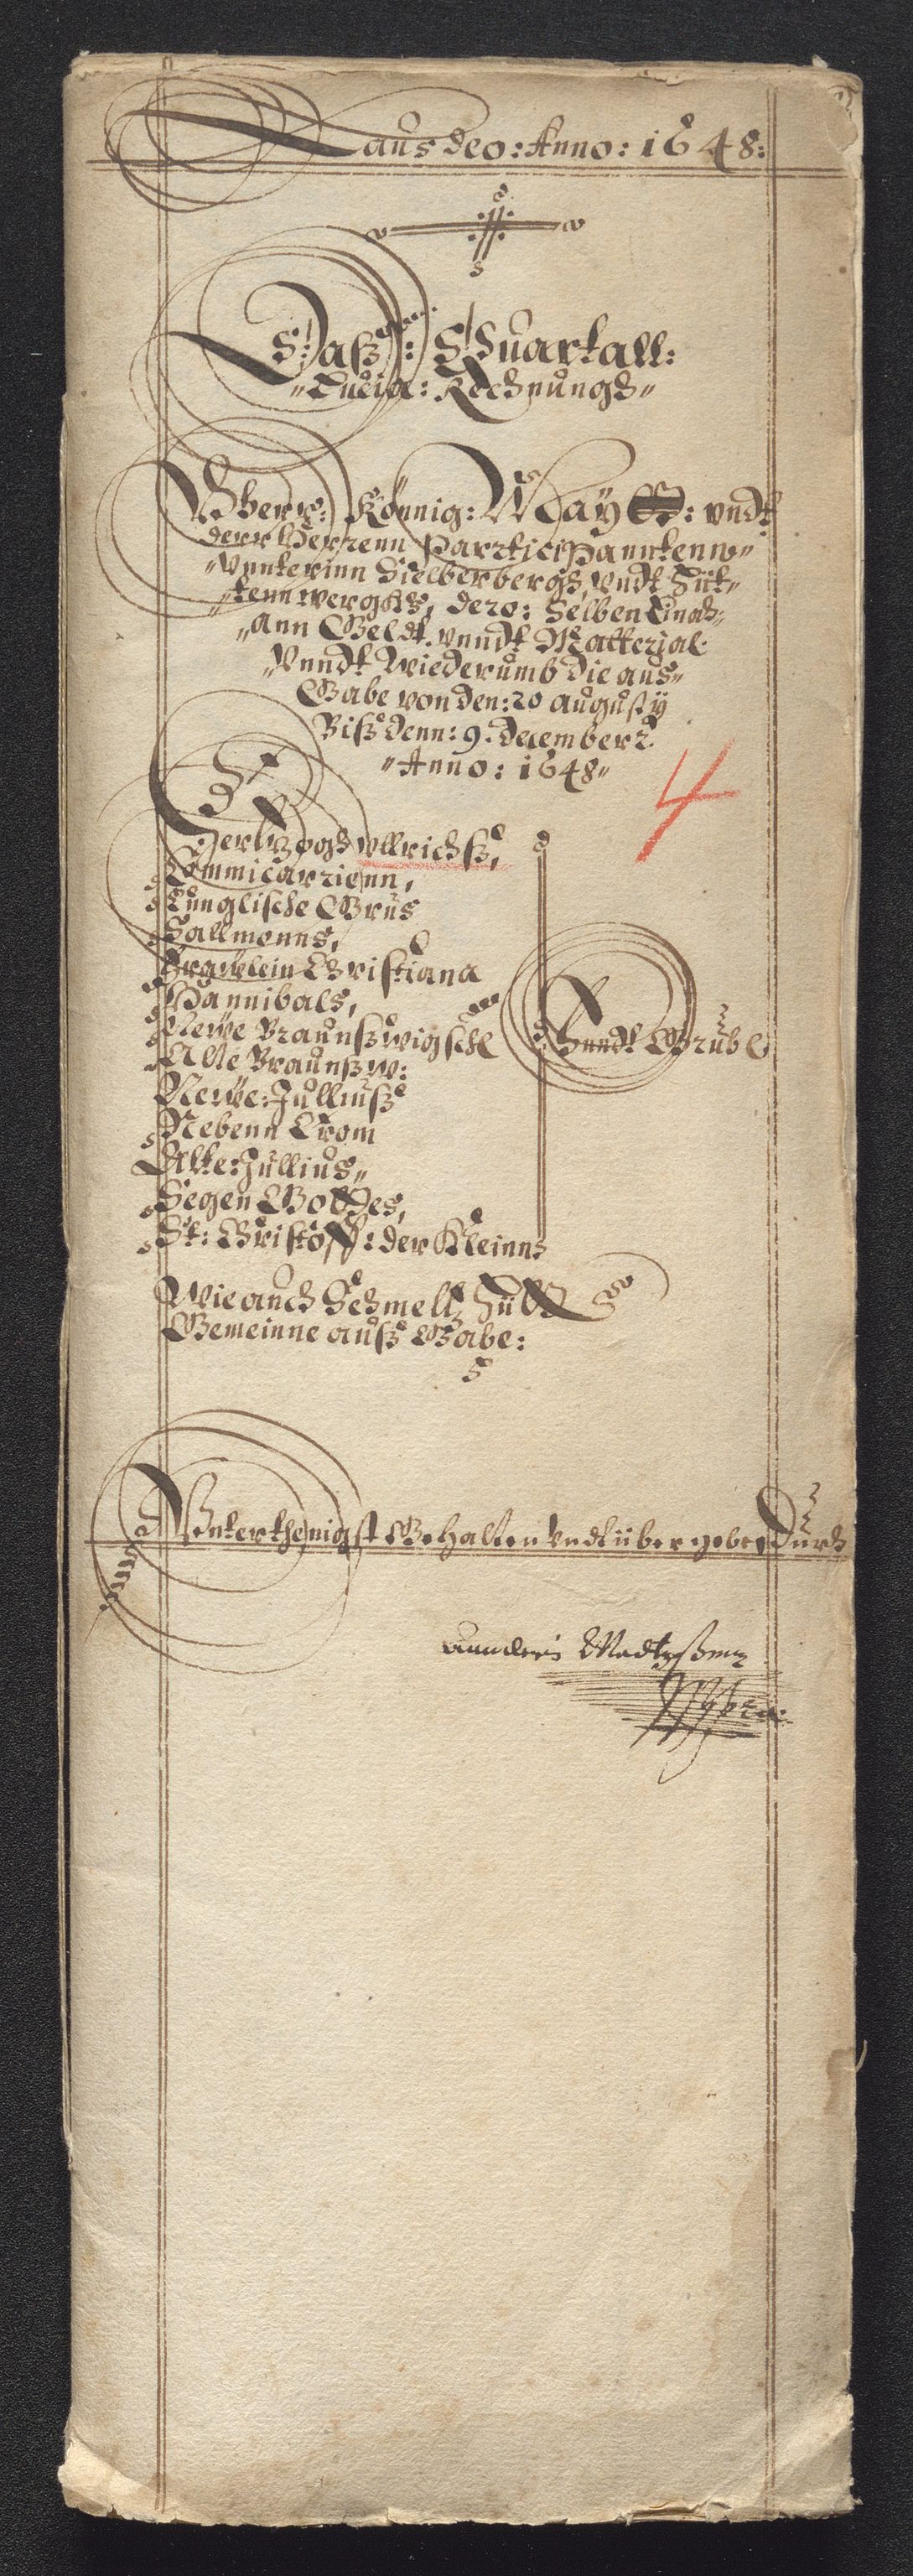 Laus deo: Anno: 1648:
Daß: Quartall:
Lucia: Rechnungh
Vber: Könnig: Maÿ: vndt
derr Herrenn Participanntenn
Vnterinn Sielberbergk, vndt Hüt-
tenn wergks, dero: Selben
ann Geldt vnndt Matterial
Vnndt wiederumb die aus-
Gabe von den: 20 augustÿ
Biß denn: 9. decembers
Anno: 1648
4
Hertzogh vllrichß,
Commicarrienn,
Eünglische Grüs
Sallmonns,
Fraülein Christiana
Hannibals,
Newe Braünßwigsche
Alte Braünßw:
Newe: Jülliuß
Nebenn Trom
Alte: Jüllius
Segen Gottes,
St: Christoff: der Kleinne
Vnndt Grube
Wie auch Schmeltz Hütt
Gemeinne auß Gabe:
Vnterthenigst Gehalten vndt übergeben durch